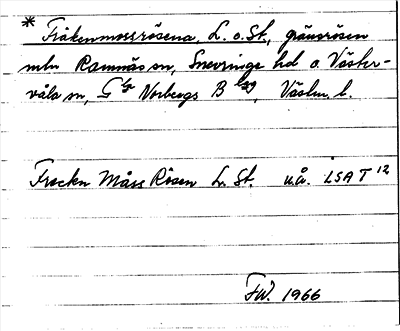 * Fräkenmossrösena, L. o. St., gränsrösen
mln Ramnäs sn, Snevringe hd o. Väster-
våla sn, G:la Norbergs Bslag, Västm. l.
Frecken Måss Rösen L. St. u.å. LSA T 12
F.W. 1966